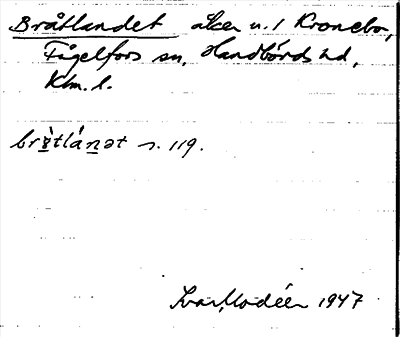 Bråtlandet åker u. 1 Kronebo,
Fågelfors sn, Handbörds hd,
Klm. l.
bròtlánət s. 119.
Ivar Modéer 1947